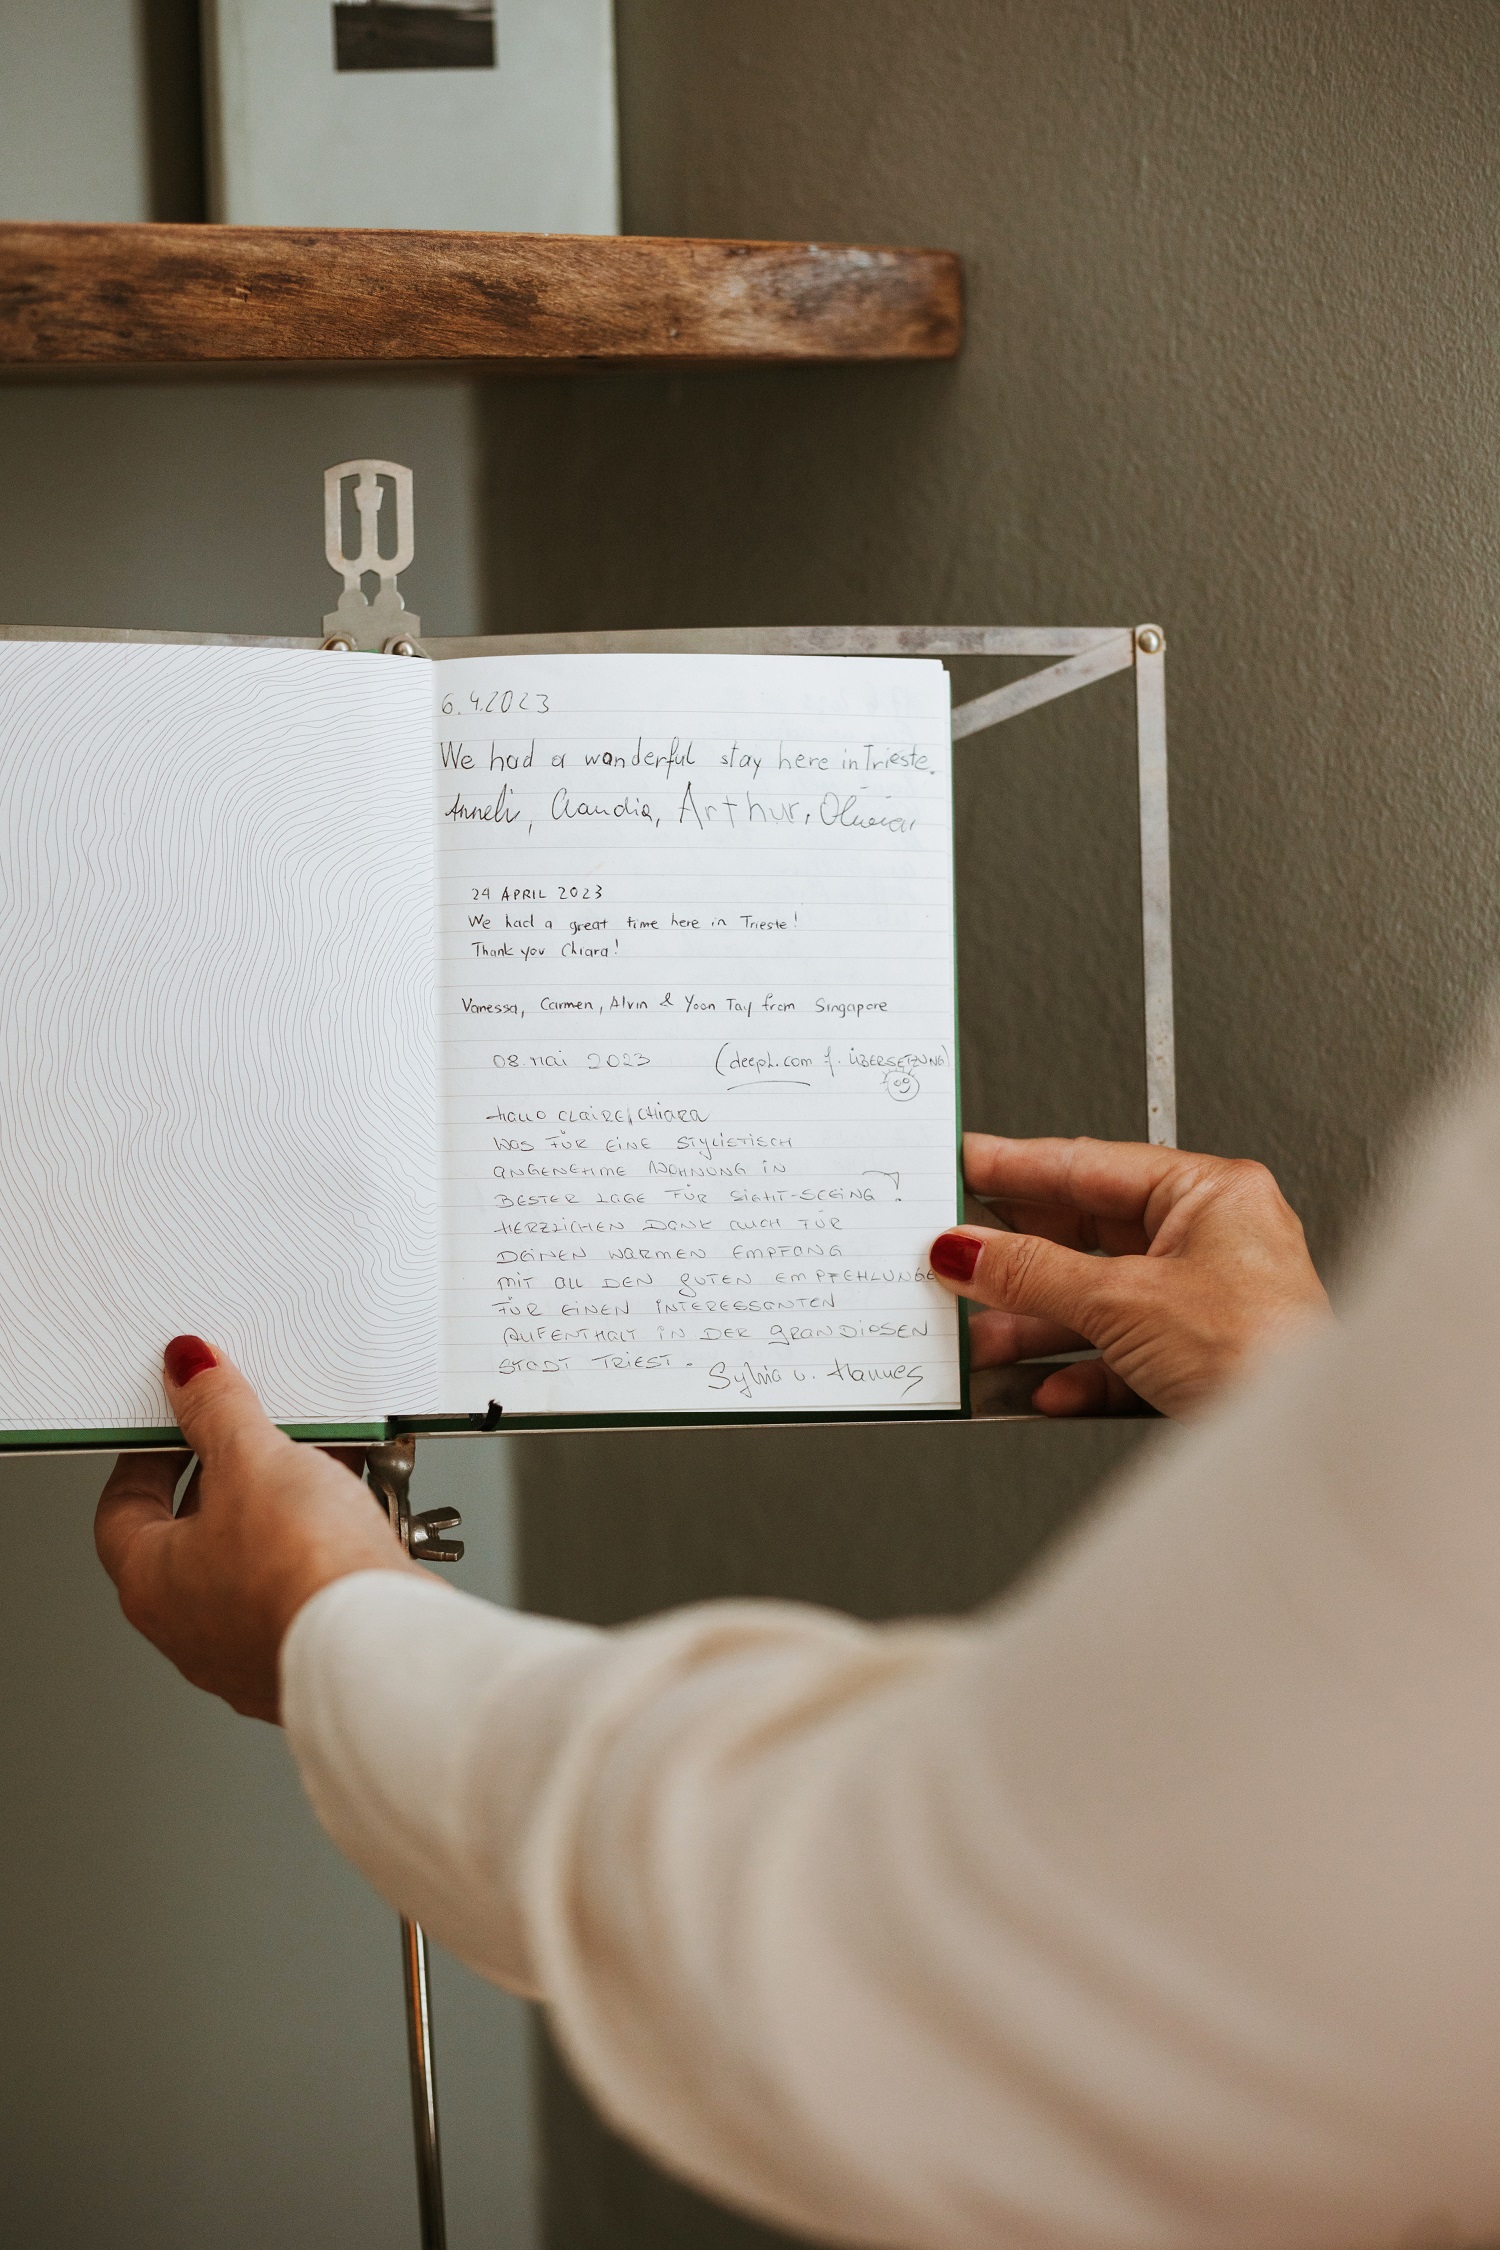 6.4.2023
We had a wanderful stay here in Trieste.
Anneli, Claudia, Arthur,
24 APRIL 2023
We had a great time here in Trieste!
Thank you Chiara!
Vanessa, Carmen, Alvin & Yoon Tay from Singapore
08. Mai 2023 (deepL.com f. ÜBERSETZUNG)
HALLO CLAIRE/CHIARA
WAS FÜR EINE STYLISTISCH
ANGENEHME WOHNUNG IN
BESTER LAGE FÜR SIGHT-SEEING!
HERZLICHEN DANK AUCH FÜR
DEINEN WARMEN EMPFANG
MIT ALL DEN GUTEN EMPFEHLUNGE
FÜR EINEN INTERESSANTEN
AUFENTHALT IN DER GRANDIOSEN
STADT TRIEST. Sylvia u. Hannes